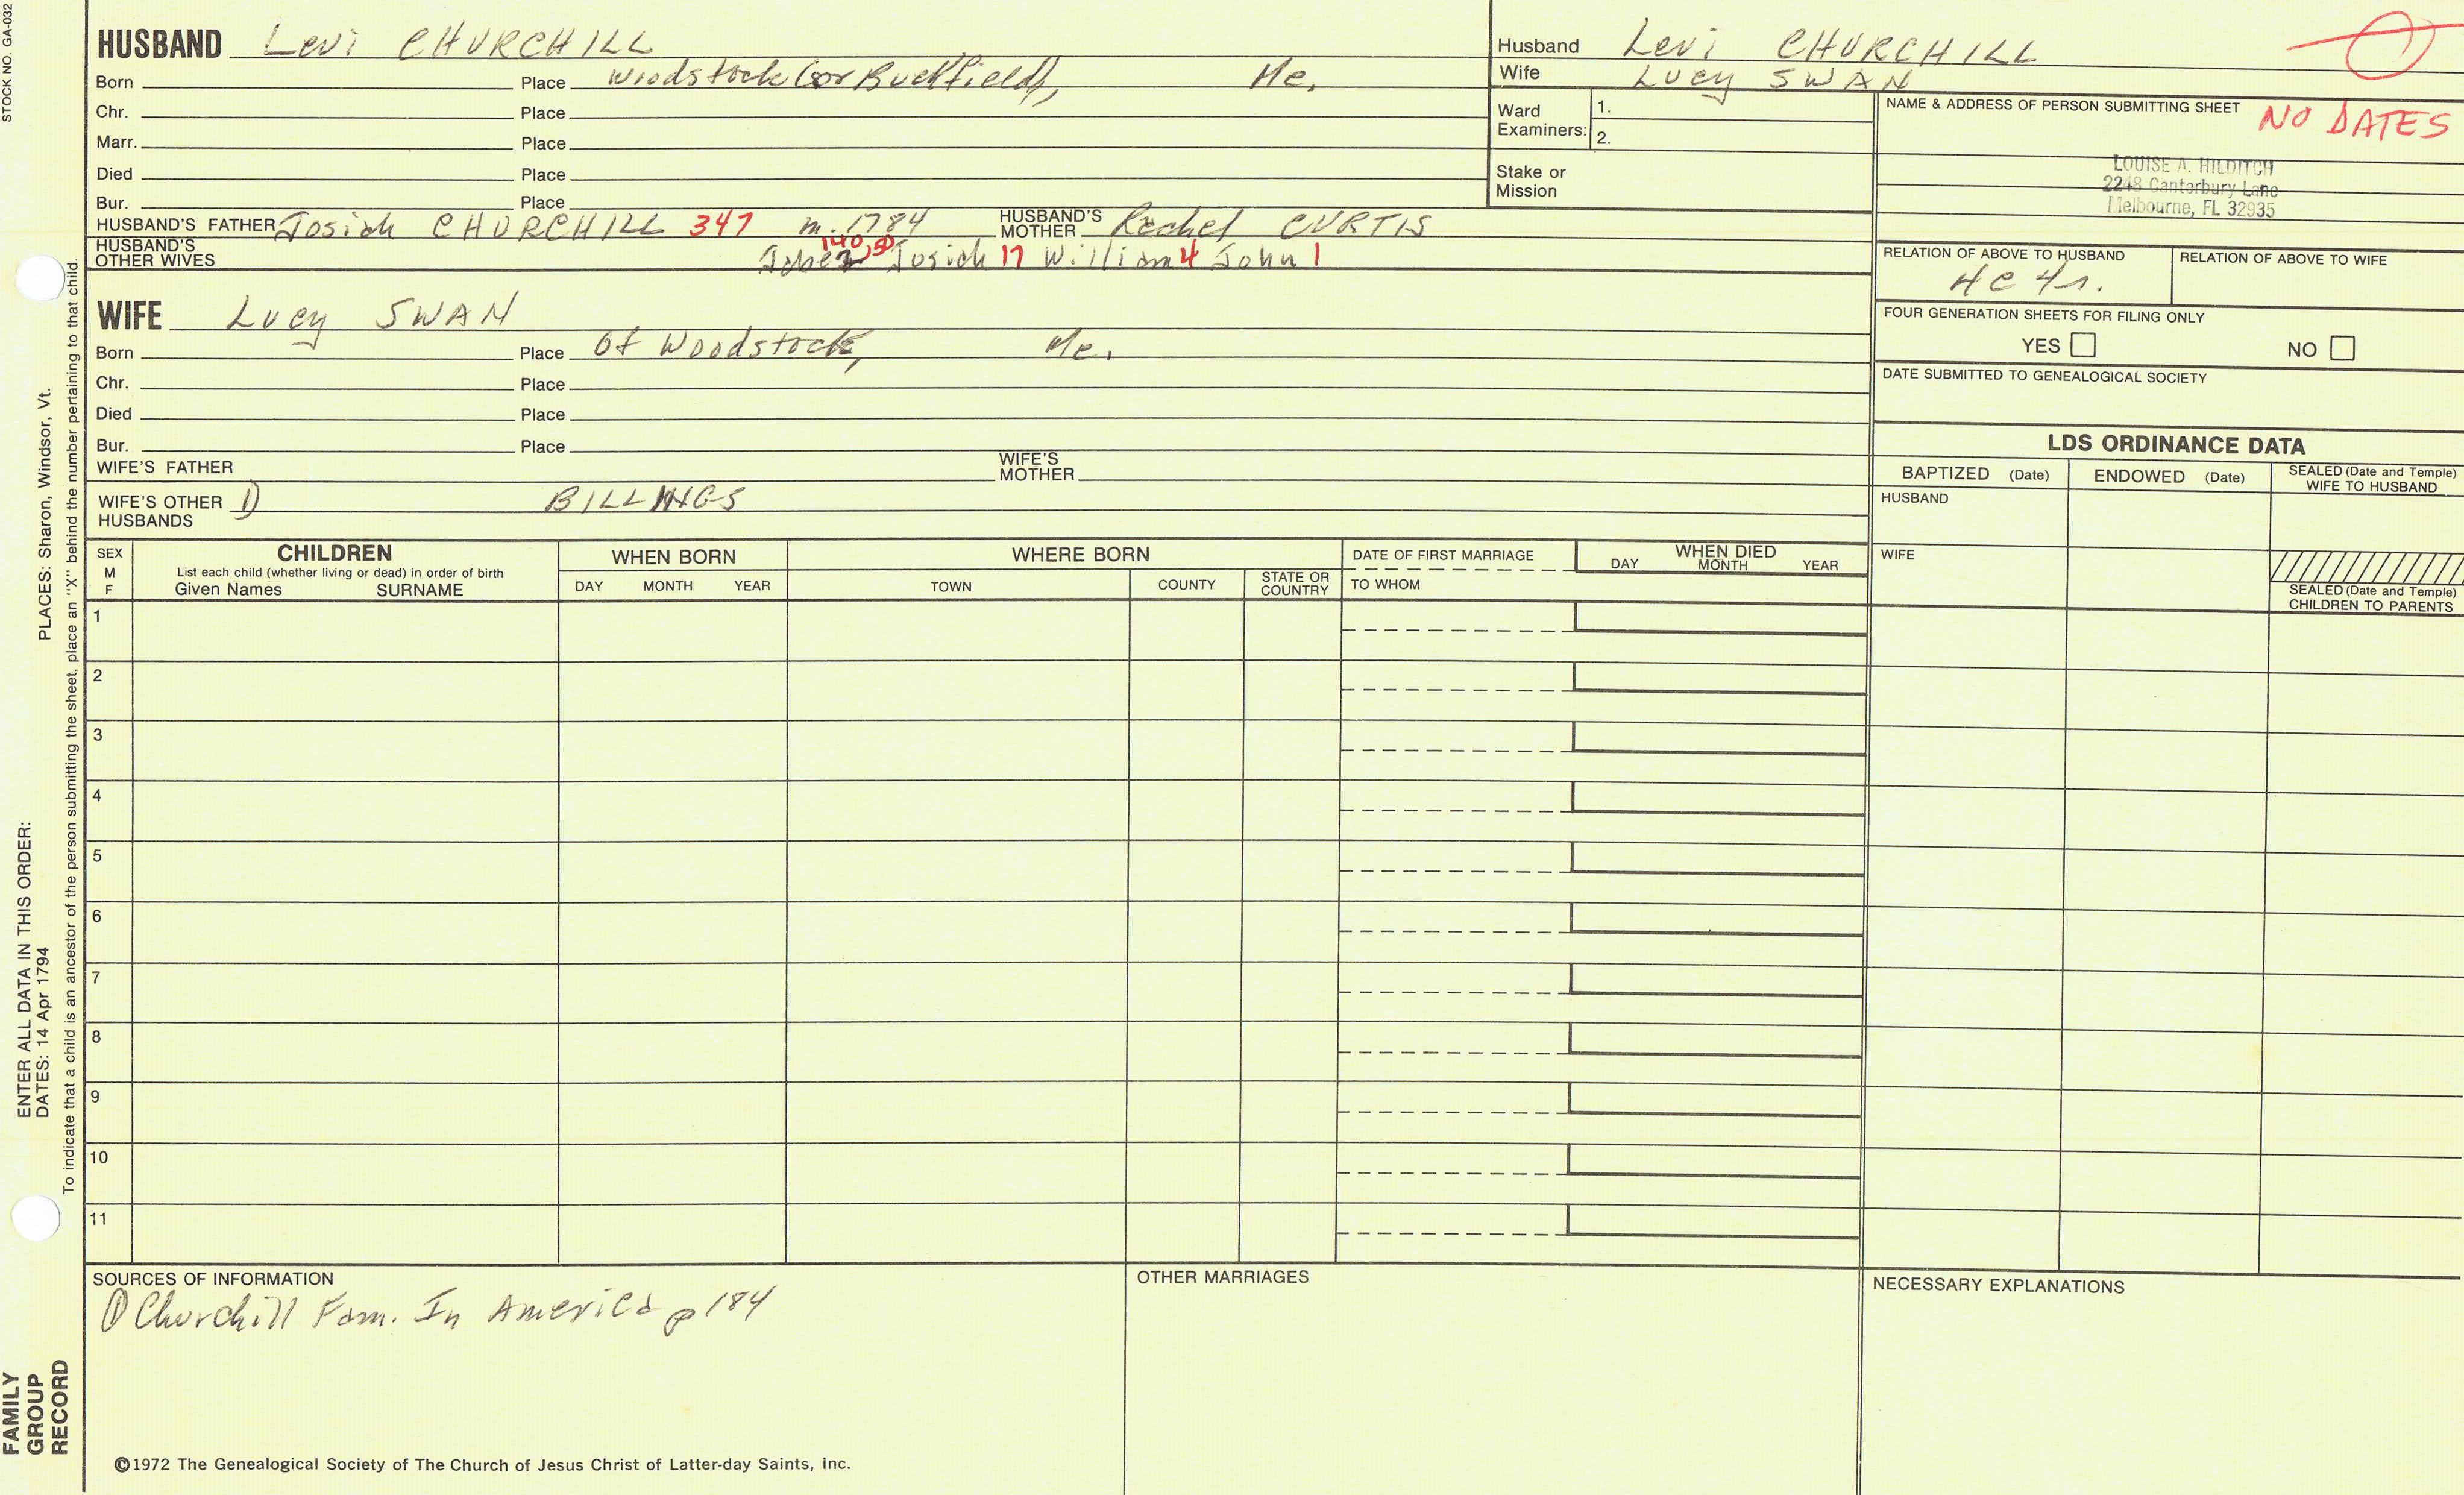 STOCK NO. GA-032
HUSBAND Levi CHURCHILL
Born Place Woodstock (or Buckfield), Me.
Chr. Place
Marr. Place
Died Place
Bur. Place
HUSBAND'S FATHER Josiah CHURCHILL 347 m. 1784 HUSBAND'S MOTHER Rachel CURTIS
HUSBAND'S OTHER WIVES 140, 50 Josiah 17 William 4 John 1
Husband Levi CHURCHILL
Wife Lucy SWAN
Ward Examiners: 1.
2.
Stake or Mission
NAME & ADDRESS OF PERSON SUBMITTING SHEET NO DATES
LOUISE A. HILDITCH
2248 Canterbury Lane
Melbourne, FL 32935
RELATION OF ABOVE TO HUSBAND RELATION OF ABOVE TO WIFE
4C 4r.
FOUR GENERATION SHEETS FOR FILING ONLY
YES NO
DATE SUBMITTED TO GENEALOGICAL SOCIETY
WIFE Lucy SWAN
Born Place Of Woodstock, Me.
Chr. Place
Died Place
Bur. Place
WIFE'S FATHER WIFE'S MOTHER
WIFE'S OTHER HUSBANDS 1) BILLINGS
LDS ORDINANCE DATA
BAPTIZED (Date) ENDOWED (Date) SEALED (Date and Temple) WIFE TO HUSBAND
HUSBAND
WIFE
SEALED (Date and Temple) CHILDREN TO PARENTS
SEX M F
CHILDREN
List each child (whether living or dead) in order of birth
Given Names SURNAME
WHEN BORN
DAY MONTH YEAR
WHERE BORN
TOWN COUNTY STATE OR COUNTRY
DATE OF FIRST MARRIAGE
TO WHOM
WHEN DIED
DAY MONTH YEAR
1
2
3
4
5
6
7
8
9
10
11
SOURCES OF INFORMATION
① Churchill Fam. In America p 184
OTHER MARRIAGES
NECESSARY EXPLANATIONS
©1972 The Genealogical Society of The Church of Jesus Christ of Latter-day Saints, Inc.
FAMILY
GROUP
RECORD
ENTER ALL DATA IN THIS ORDER:
DATES: 14 Apr 1794 PLACES: Sharon, Windsor, Vt.
To indicate that a child is an ancestor of the person submitting the sheet, place an "X" behind the number pertaining to that child.